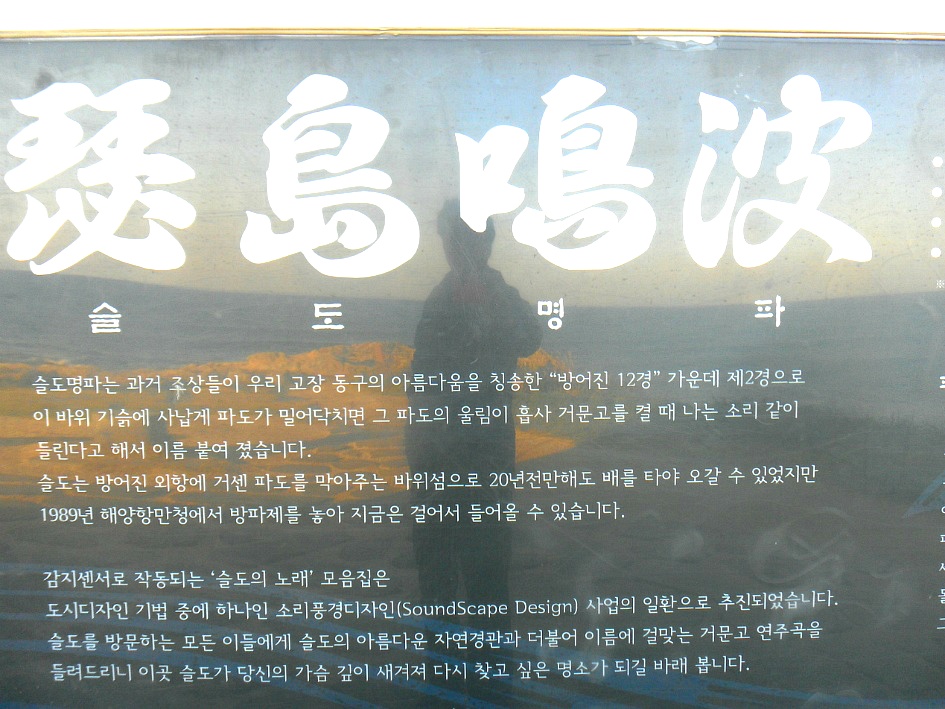 瑟島鳴波
슬도명파
슬도명파는 과거 조상들이 우리 고장 동구의 아름다움을 칭송한 “방어진 12경” 가운데 제2경으로
이 바위 기슭에 사납게 파도가 밀어닥치면 그 파도의 울림이 흡사 거문고를 켤 때 나는 소리 같이
들린다고 해서 이름 붙여 졌습니다.
슬도는 방어진 외항에 거센 파도를 막아주는 바위섬으로 20년전만해도 배를 타야 오갈 수 있었지만
1989년 해양항만청에서 방파제를 놓아 지금은 걸어서 들어올 수 있습니다.
감지센서로 작동되는 ‘슬도의 노래’ 모음집은
도시디자인 기법 중에 하나인 소리풍경디자인(SoundScape Design) 사업의 일환으로 추진되었습니다.
슬도를 방문하는 모든 이들에게 슬도의 아름다운 자연경관과 더불어 이름에 걸맞는 거문고 연주곡을
들려드리니 이곳 슬도가 당신의 가슴 깊이 새겨져 다시 찾고 싶은 명소가 되길 바래 봅니다.